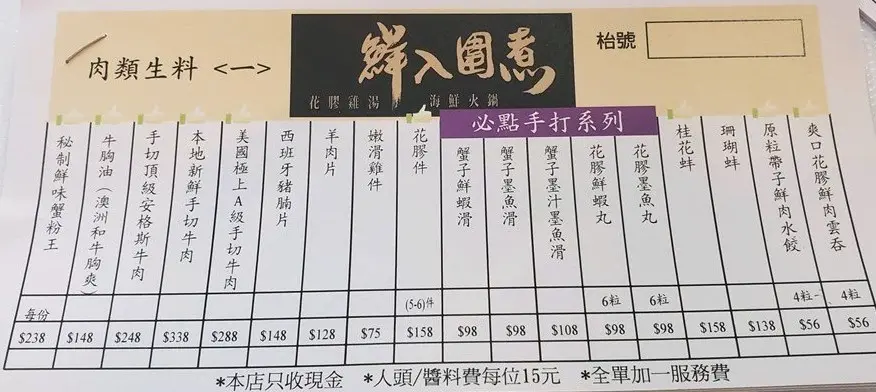 肉類生料 <一>
鮮入圍煮
花膠雞湯 海鮮火鍋
枱號
必點手打系列
秘制鮮味蟹粉王
每份
$238
牛胸油(澳洲和牛胸爽)
$148
手切頂級安格斯牛肉
$248
本地新鮮手切牛肉
$338
美國極上A級手切牛肉
$288
西班牙豬腩片
$148
羊肉片
$128
嫩滑雞件
$75
花膠件
(5-6)件
$158
蟹子鮮蝦滑
$98
蟹子墨魚滑
$98
蟹子墨汁墨魚滑
$108
花膠鮮蝦丸
6粒
$98
花膠墨魚丸
6粒
$98
桂花蚌
$158
珊瑚蚌
$138
原粒帶子鮮肉水餃
4粒
$56
爽口花膠鮮肉雲吞
4粒
$56
*本店只收現金 *人頭/醬料費每位15元 *全單加一服務費